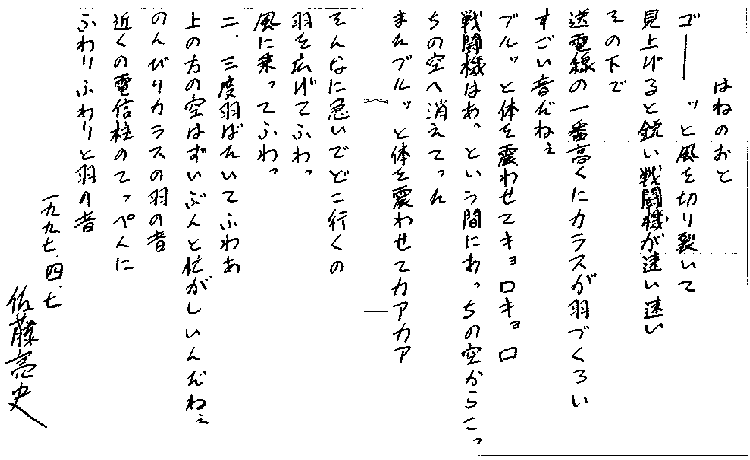 はねのおと
ゴーーーッと風を切り裂いて
見上げると鋭い戦闘機が速い速い
その下で
送電線の一番高くにカラスが羽づくろい
すごい音だねぇ
ブルッと体を震わせてキョロキョロ
戦闘機はあっという間にあっちの空からこっ
ちの空へ消えてった
またブルッと体を震わせてカアカア
そんなに急いでどこ行くの
羽を広げてふわっ
風に乗ってふわっ
二、三度羽ばたいてふわあ
上の方の空はずいぶんと忙がしいんだねぇ
のんびりカラスの羽の音
近くの電信柱のてっぺんに
ふわりふわりと羽の音
一九九七.四.七
佐藤亮史